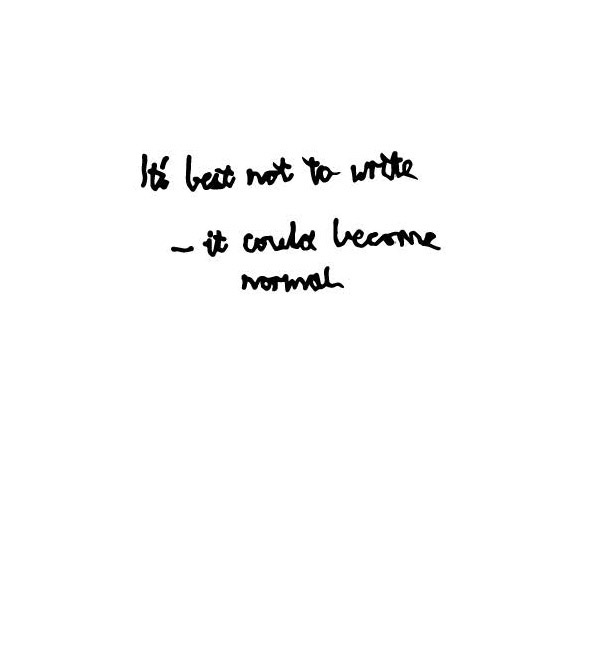 It's best not to write
– it could become
normal